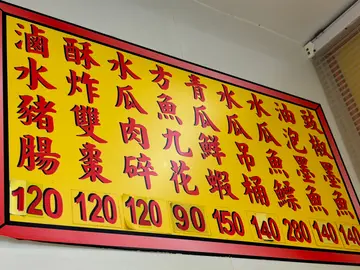 豉椒墨魚
140
油泡墨魚
140
水瓜魚鰾
280
水瓜吊桶
140
青瓜鮮蝦
150
方魚九花
90
水瓜肉碎
120
酥炸雙棗
120
滷水豬腸
120